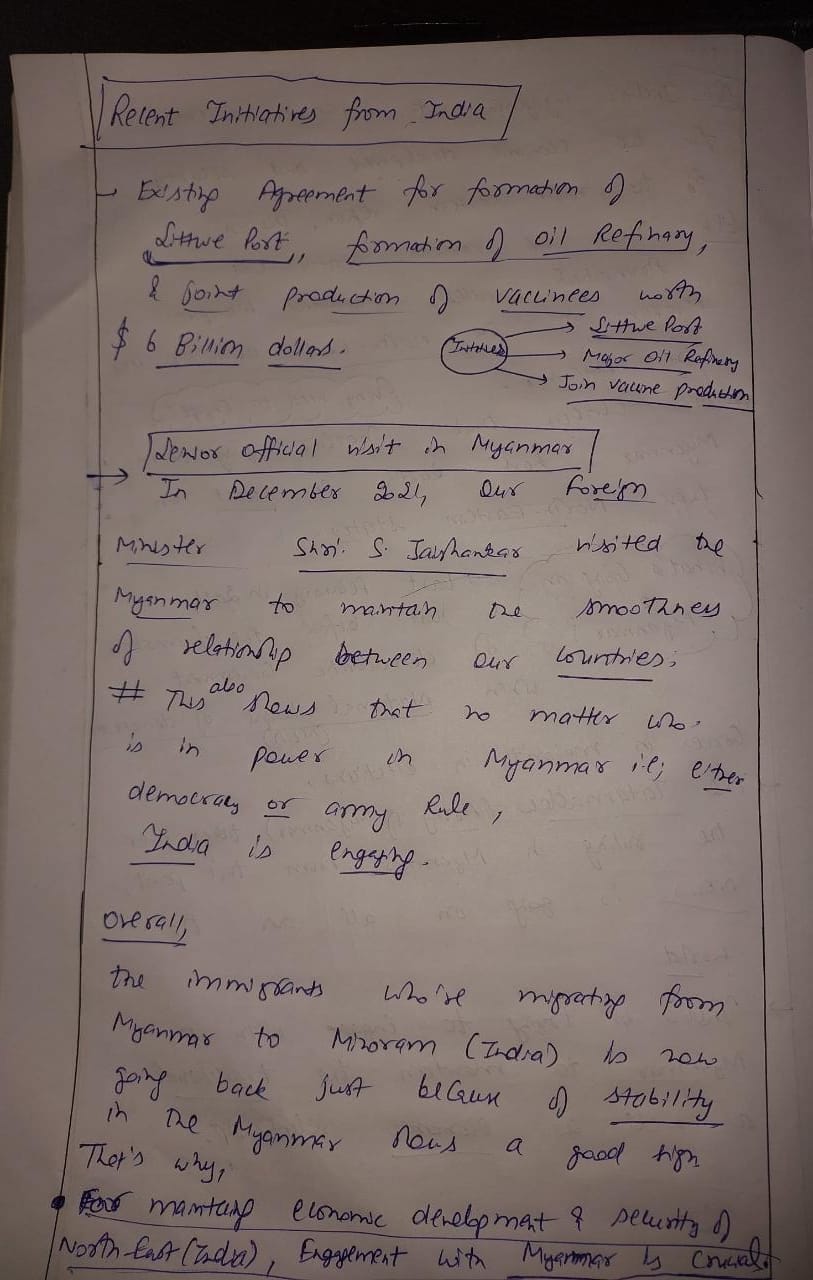 Recent Initiatives from India
→ Existing Agreement for formation of
Sittwe Port, formation of Oil Refinary,
& joint production of vaccinees worth
$ 6 Billion dollars.
Initiatives → Sittwe Port
→ Major Oil Refinary
→ Join vaccine production
Senior official visit in Myanmar
→ In December 2021, Our Foreign
Minister Shri. S. Jaishankar visited the
Myanmar to maintain the smoothness
of relationship between our countries;
# This also shows that no matter who
is in power in Myanmar i.e; either
democracy or army Rule,
India is engaging.
Overall,
the immigrants who're migrating from
Myanmar to Mizoram (India) is now
going back just because of stability
in the Myanmar shows a good sign
That's why,
• For maintaing economic development & security of
North-East (India), Engagement with Myanmar is crucial.